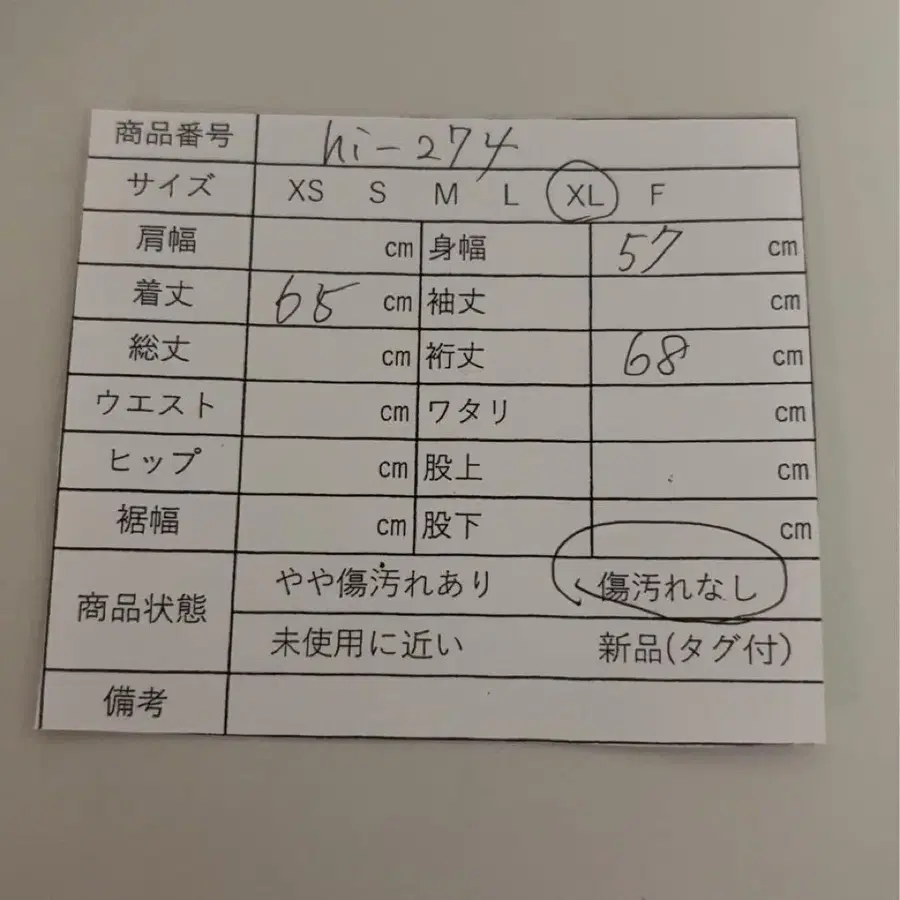 商品番号 hi-274
サイズ XS S M L XL F
肩幅 cm 身幅 57 cm
着丈 65 cm 袖丈 cm
総丈 cm 裄丈 68 cm
ウエスト cm ワタリ cm
ヒップ cm 股上 cm
裾幅 cm 股下 cm
商品状態 やや傷汚れあり 傷汚れなし
未使用に近い 新品(タグ付)
備考